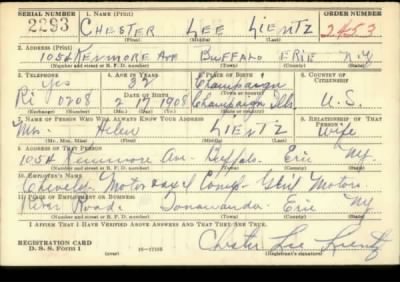 SERIAL NUMBER 1. NAME (Print) ORDER NUMBER
2293 CHESTER LEE LIENTZ 2453
(First) (Middle) (Last)
2. ADDRESS (Print)
1054 KENMORE AVE BUFFALO ERIE N.Y.
(Number and street or R. F. D. number) (Town) (County) (State)
3. TELEPHONE 4. AGE IN YEARS 5. PLACE OF BIRTH 6. COUNTRY OF CITIZENSHIP
Yes 32 Champaign
DATE OF BIRTH (Town or county)
Ri 0208 2 17 1908 Champaign Ills. U.S.
(Exchange) (Number) (Mo.) (Day) (Yr.) (State or country)
7. NAME OF PERSON WHO WILL ALWAYS KNOW YOUR ADDRESS 8. RELATIONSHIP OF THAT PERSON
Mrs. Helen LIENTZ Wife
(Mr., Mrs., Miss) (First) (Middle) (Last)
9. ADDRESS OF THAT PERSON
1054 Kenmore Ave. Buffalo. Erie NY.
(Number and street or R. F. D. number) (Town) (County) (State)
10. EMPLOYER'S NAME
Motor Motors
11. PLACE OF EMPLOYMENT OR BUSINESS
River Road. Tonawanda. Erie NY
(Number and street or R. F. D. number) (Town) (County) (State)
I AFFIRM THAT I HAVE VERIFIED ABOVE ANSWERS AND THAT THEY ARE TRUE.
REGISTRATION CARD
D. S. S. Form 1 (over) 16—17105 Chester Lee Lientz
(Registrant's signature)